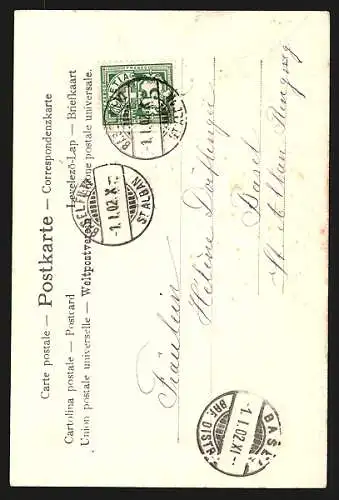 Carte postale — Postkarte — Correspondenzkarte
Cartolina postale — Postcard — Levelező-Lap — Briefkaart
Union postale universelle — Weltpostverein — Unione postale universale.
FRANCO
5
BASEL
1.I.02.X
ST ALBAN
BASEL
1.I.02.X
ST ALBAN
Fräulein
Helene
Basel
St Alban Ringweg
BASEL
1.I.02.XI
BRF. DISTR.